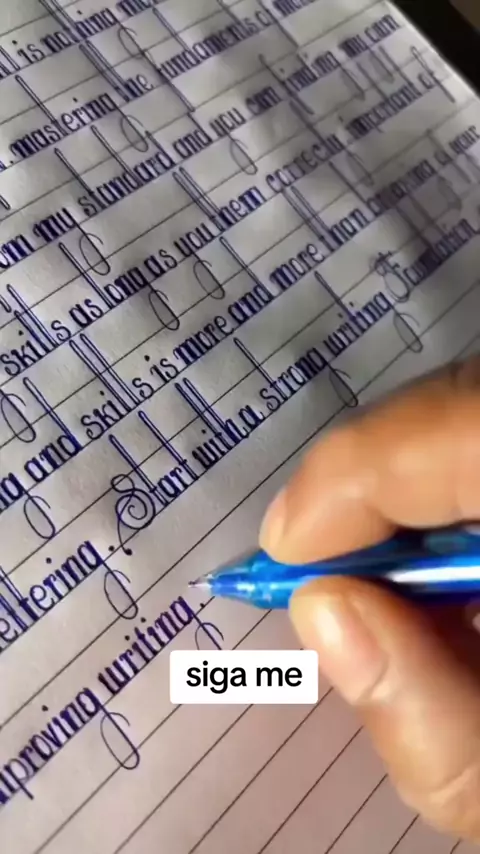 is nothing
mastering the fundaments
my standard and you can
skills as long as you them correctly important of
and skills is more and more than of your
eltering. Start with a strong writing Foundation
mproving writing.
siga me